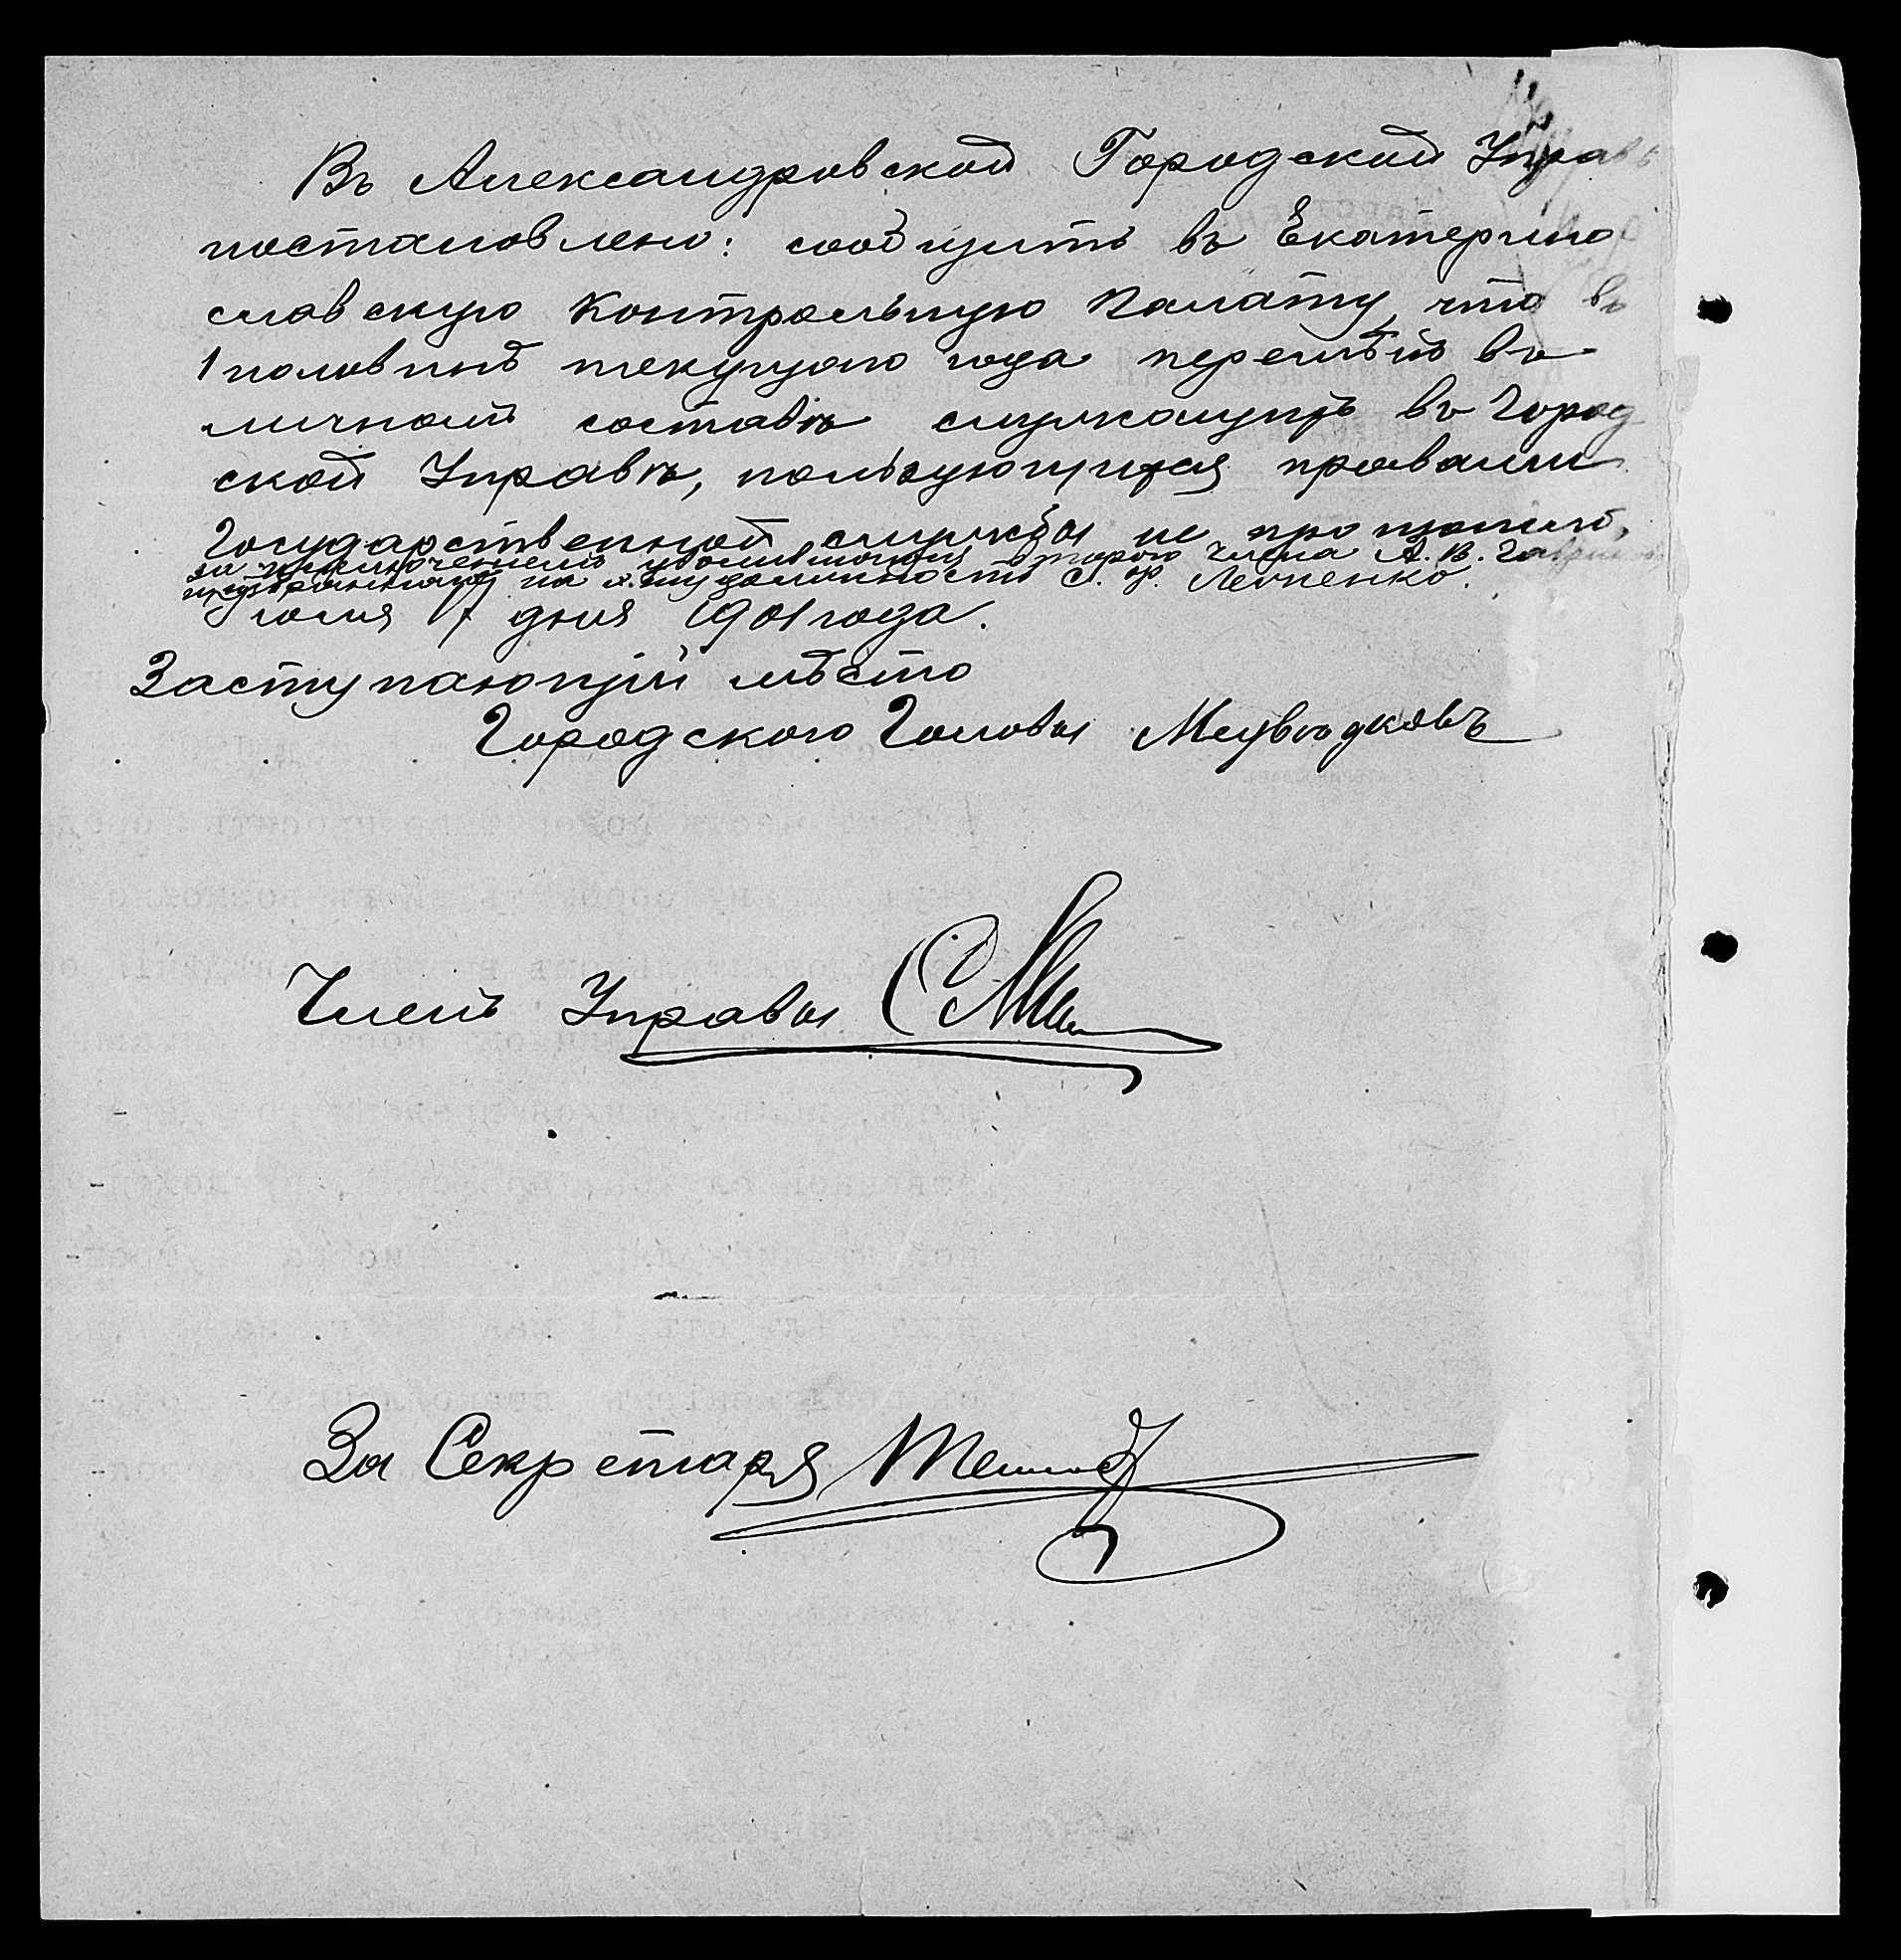 Въ Александровской Городской Управѣ
постановлено: сообщить въ Екатерино
славскую Контрольную Палату, что въ
1 половинѣ текущаго года перемѣнъ въ
личномъ составѣ служащихъ въ Город
ской Управѣ, пользующихся правами
Государственной службы не произошло,
за исключеніемъ уволившагося второго члена А. В.
на эту должность С. Ф. Левченко.
Іюля 17 дня 1901 года.
Заступающій мѣсто
Городского Головы Медвѣдковъ
Членъ Управы
За Секретаря